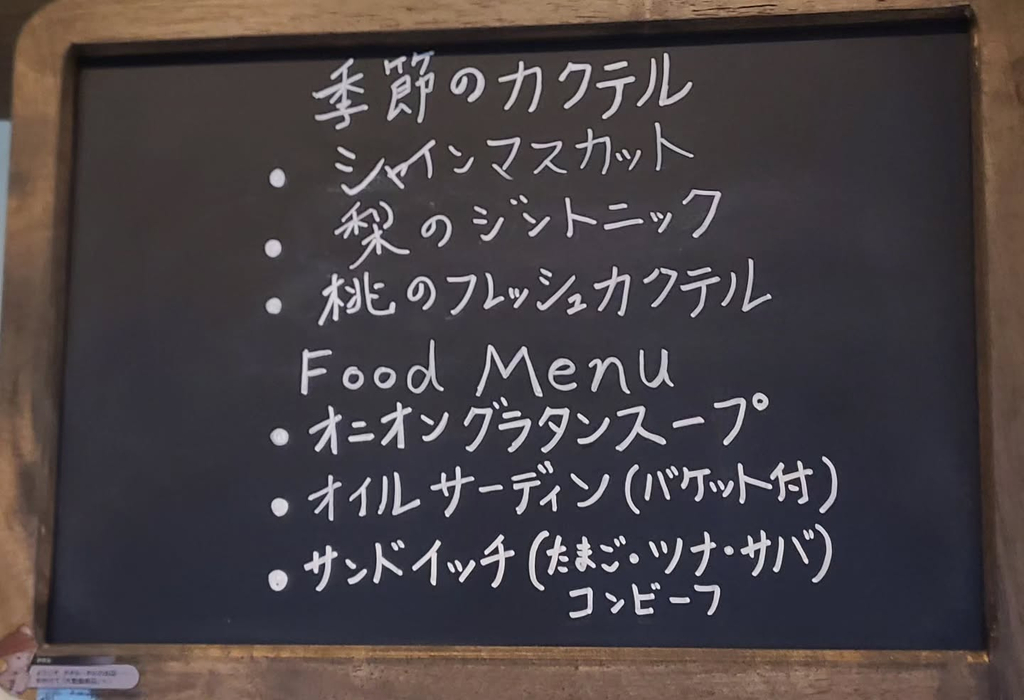 季節のカクテル
・シャインマスカット
・梨のジントニック
・桃のフレッシュカクテル
Food Menu
・オニオングラタンスープ
・オイルサーディン(バケット付)
・サンドイッチ(たまご・ツナ・サバ)
コンビーフ